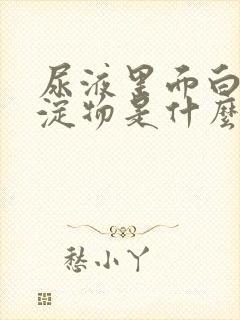 尿液里而白
淀物是什麼
愁小丫